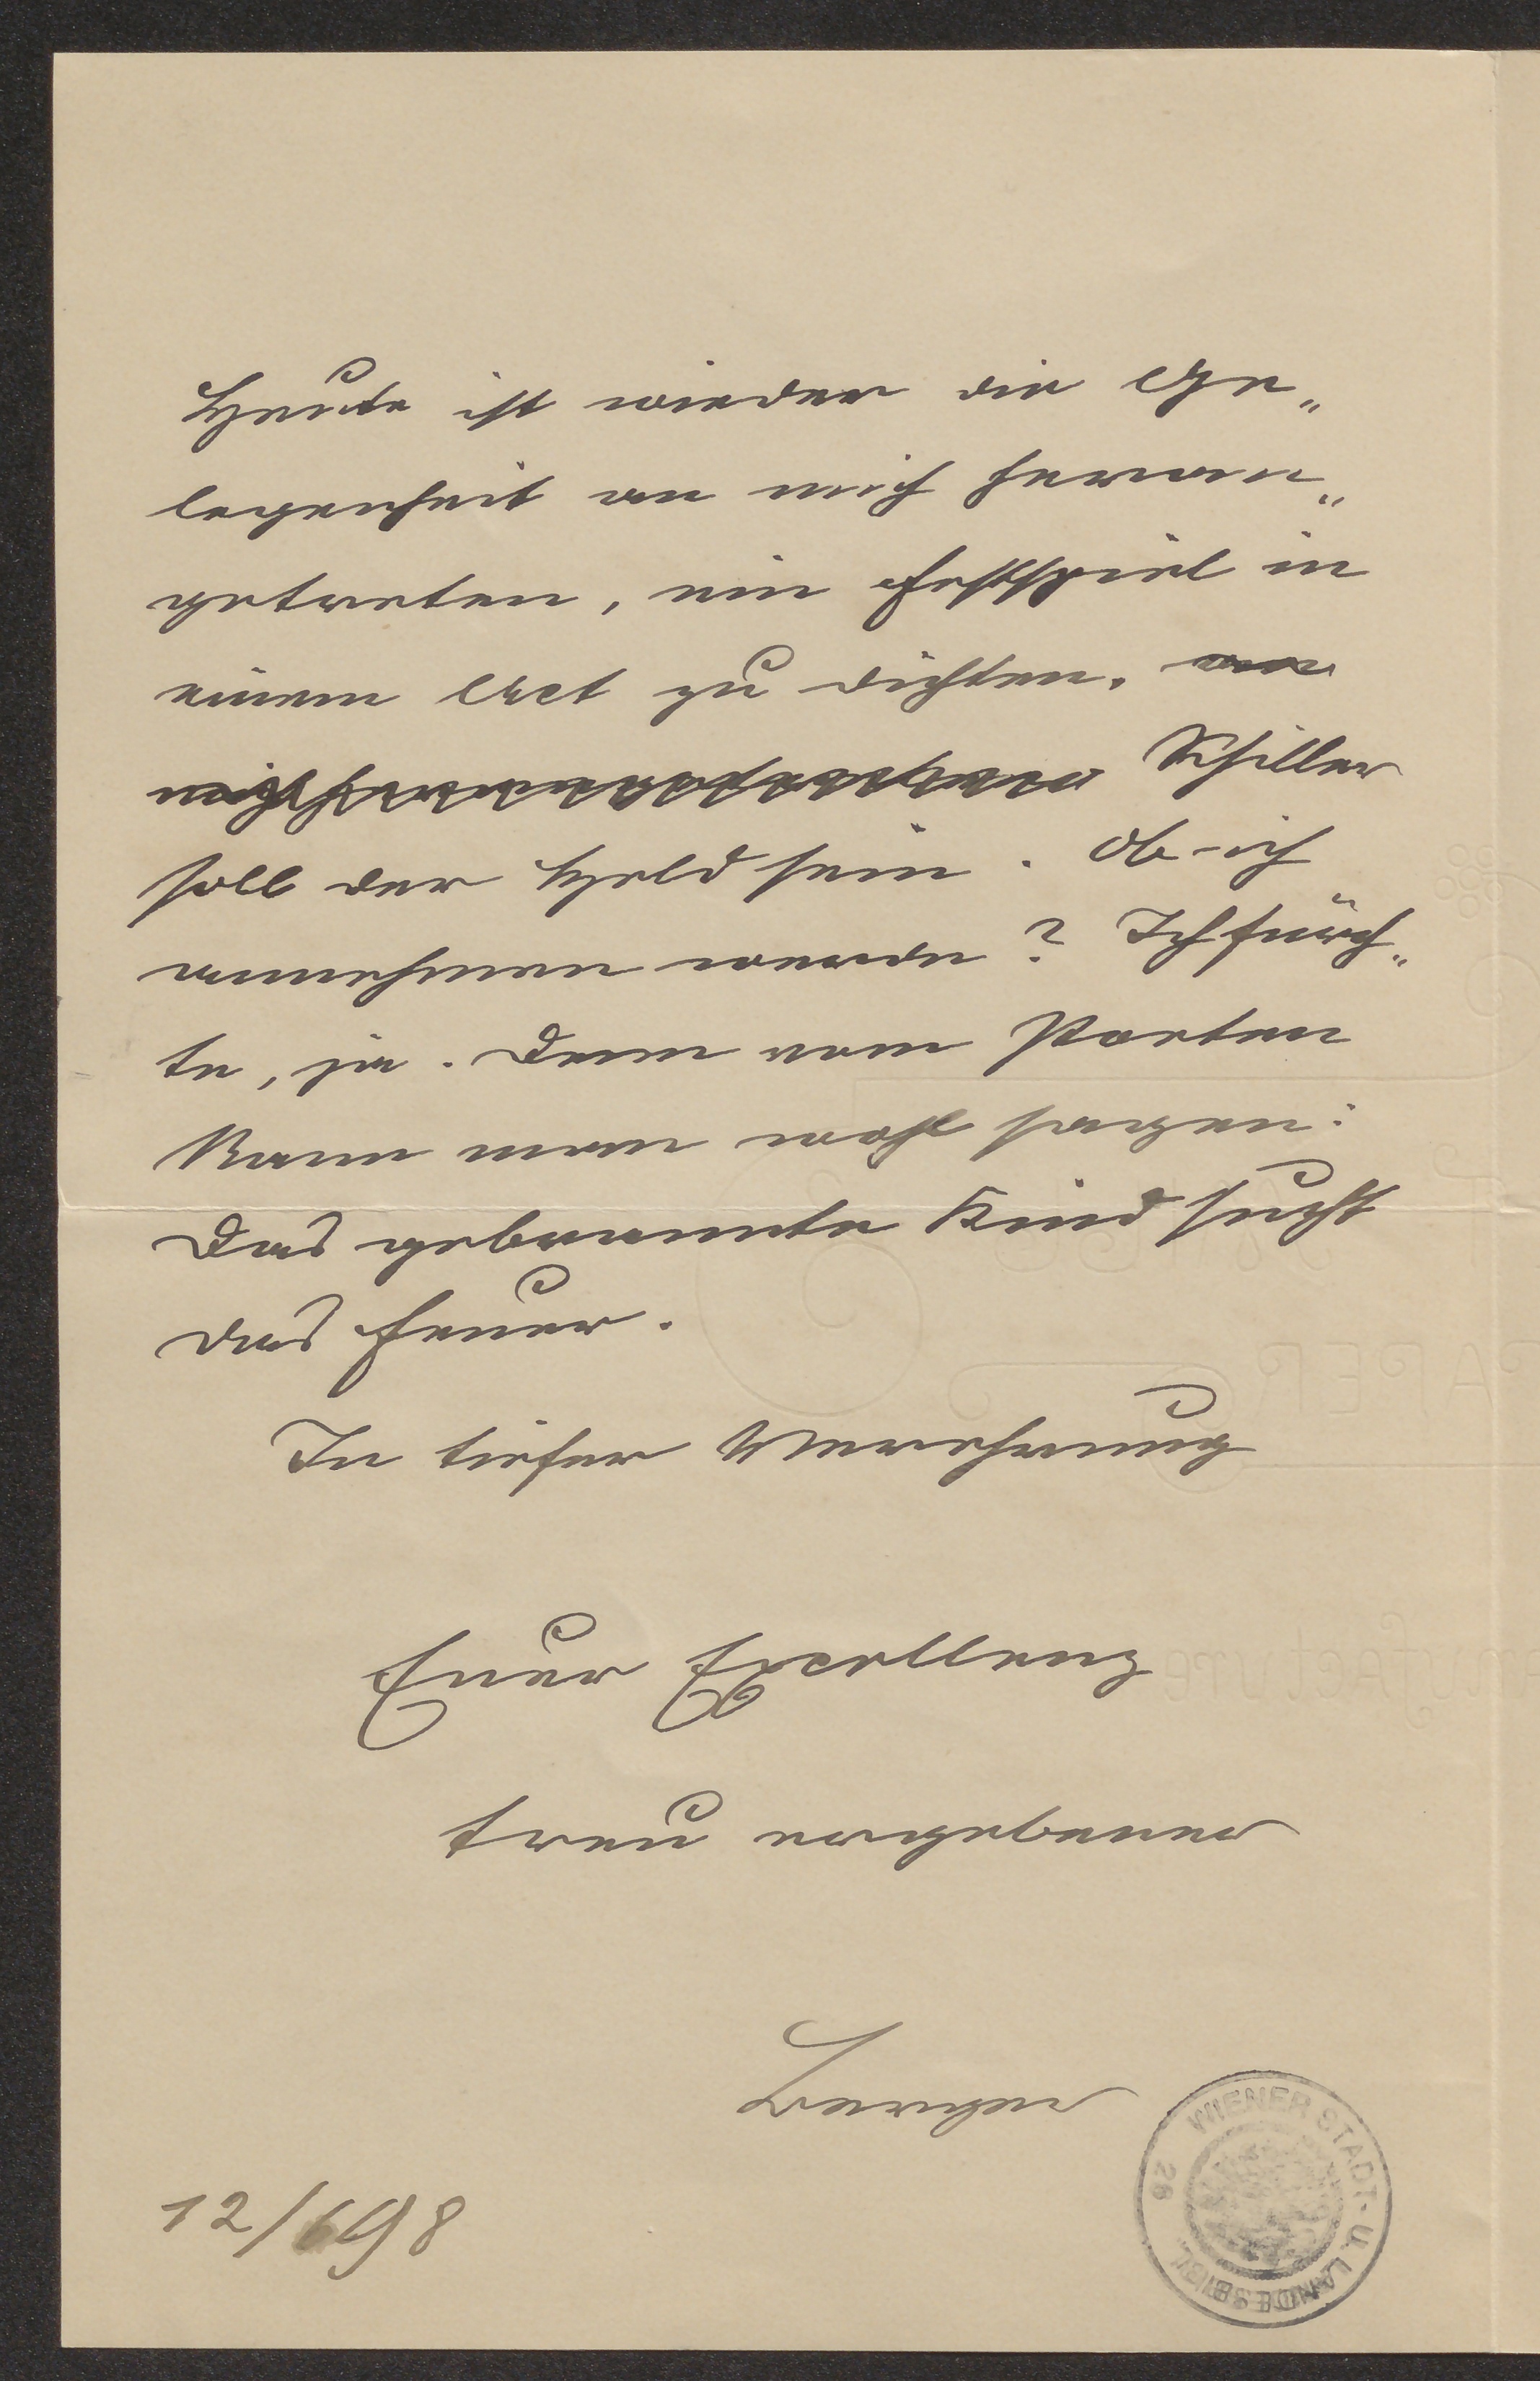 Heute ist wieder die Ge„
legenheit an mich heran„
getreten, ein Festspiel in
einem Act zu dichten. an
mich herangetreten Schiller
soll der Held sein. Ob ich
annehmen werde? Ich fürch„
te, ja. Denn vom Poeten
kann man wohl sagen:
Das gebrannte Kind sucht
das Feuer.
In tiefer Verehrung
Euer Excellenz
treu ergebener
Berger
12/698
WIENER STADT- U. LANDESBIBL.
26